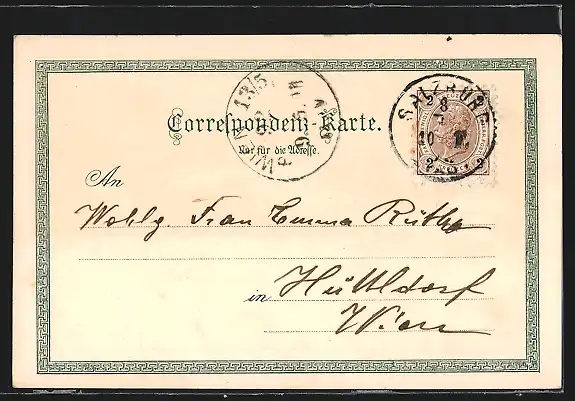 Correspondenz-Karte.
Nur für die Adresse.
SALZBURG
WIEN 13/5
2 2
An
Wohlg. Frau Emma Ruthe
in Hütteldorf
Wien